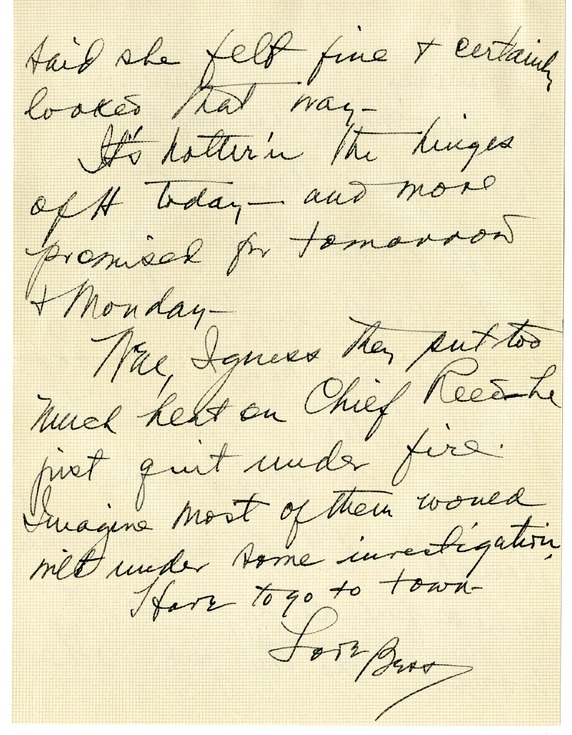 said she felt fine & certainly
looked that way-
It's hotter'n the hinges
of H today- and more
promised for tomorrow
& Monday-
Well, I guess they put too
much heat on Chief Reed- he
just quit under fire.
Imagine most of them would
wilt under some investigation.
Have to go to town-
Love Bess